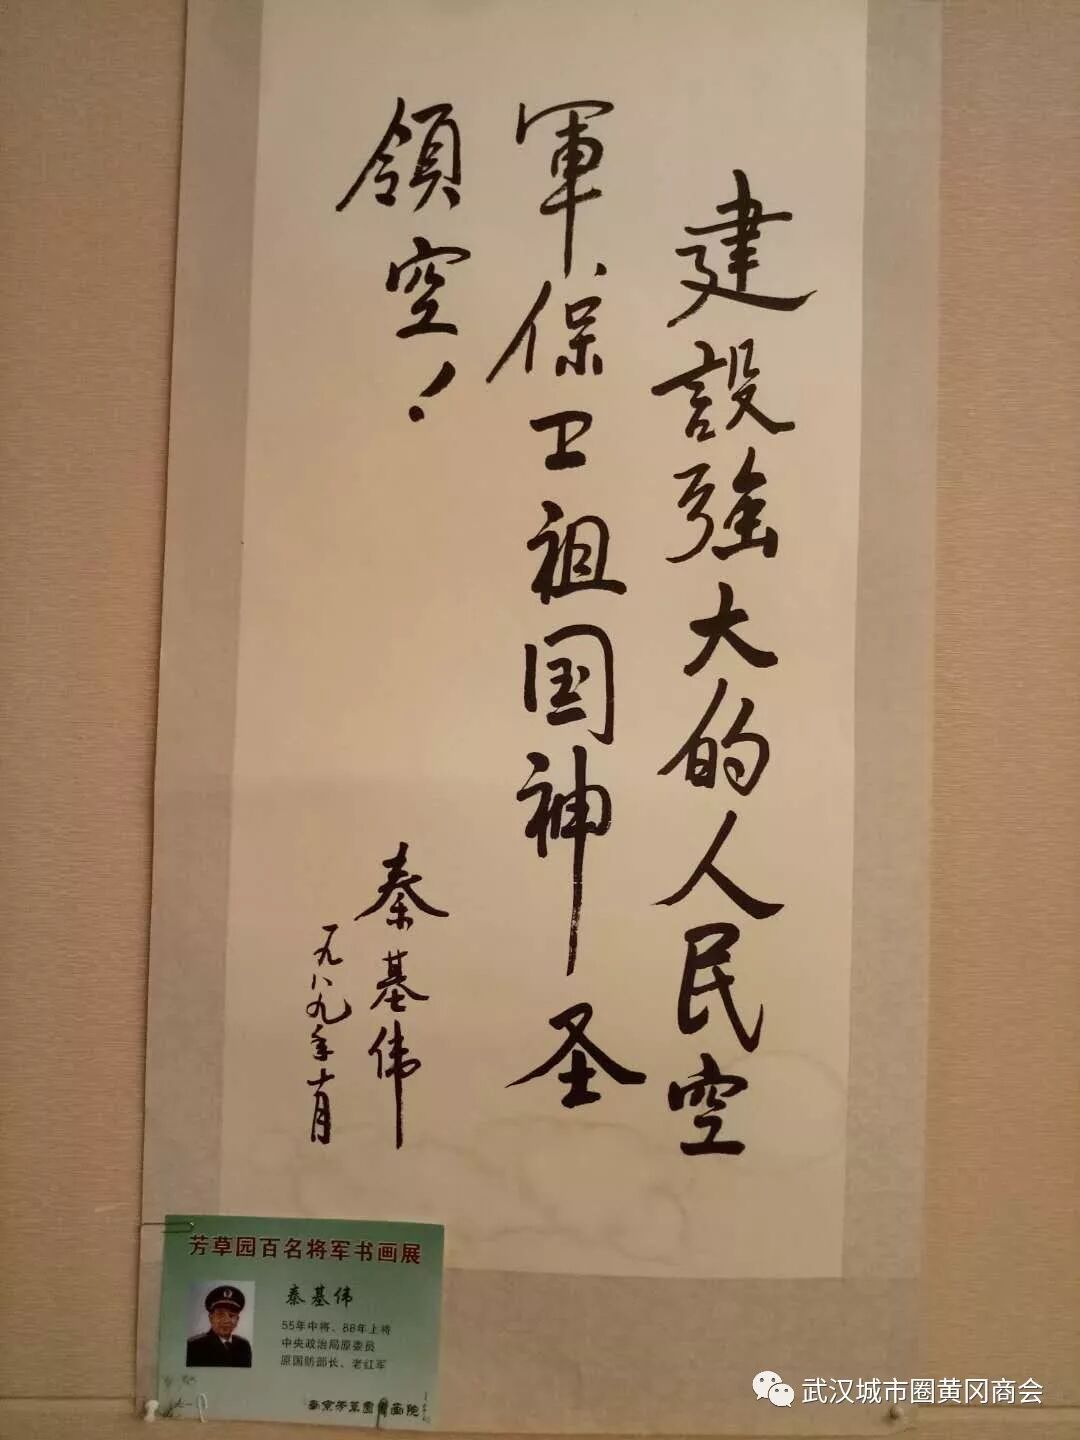 建設强大的人民空
軍、保卫祖国神圣
領空！
秦基伟
一九八九年十月
芳草园百名将军书画展
秦基伟
55年中将、88年上将
中央政治局原委员
原国防部长、老红军
芳草園書画院
武汉城市圈黄冈商会